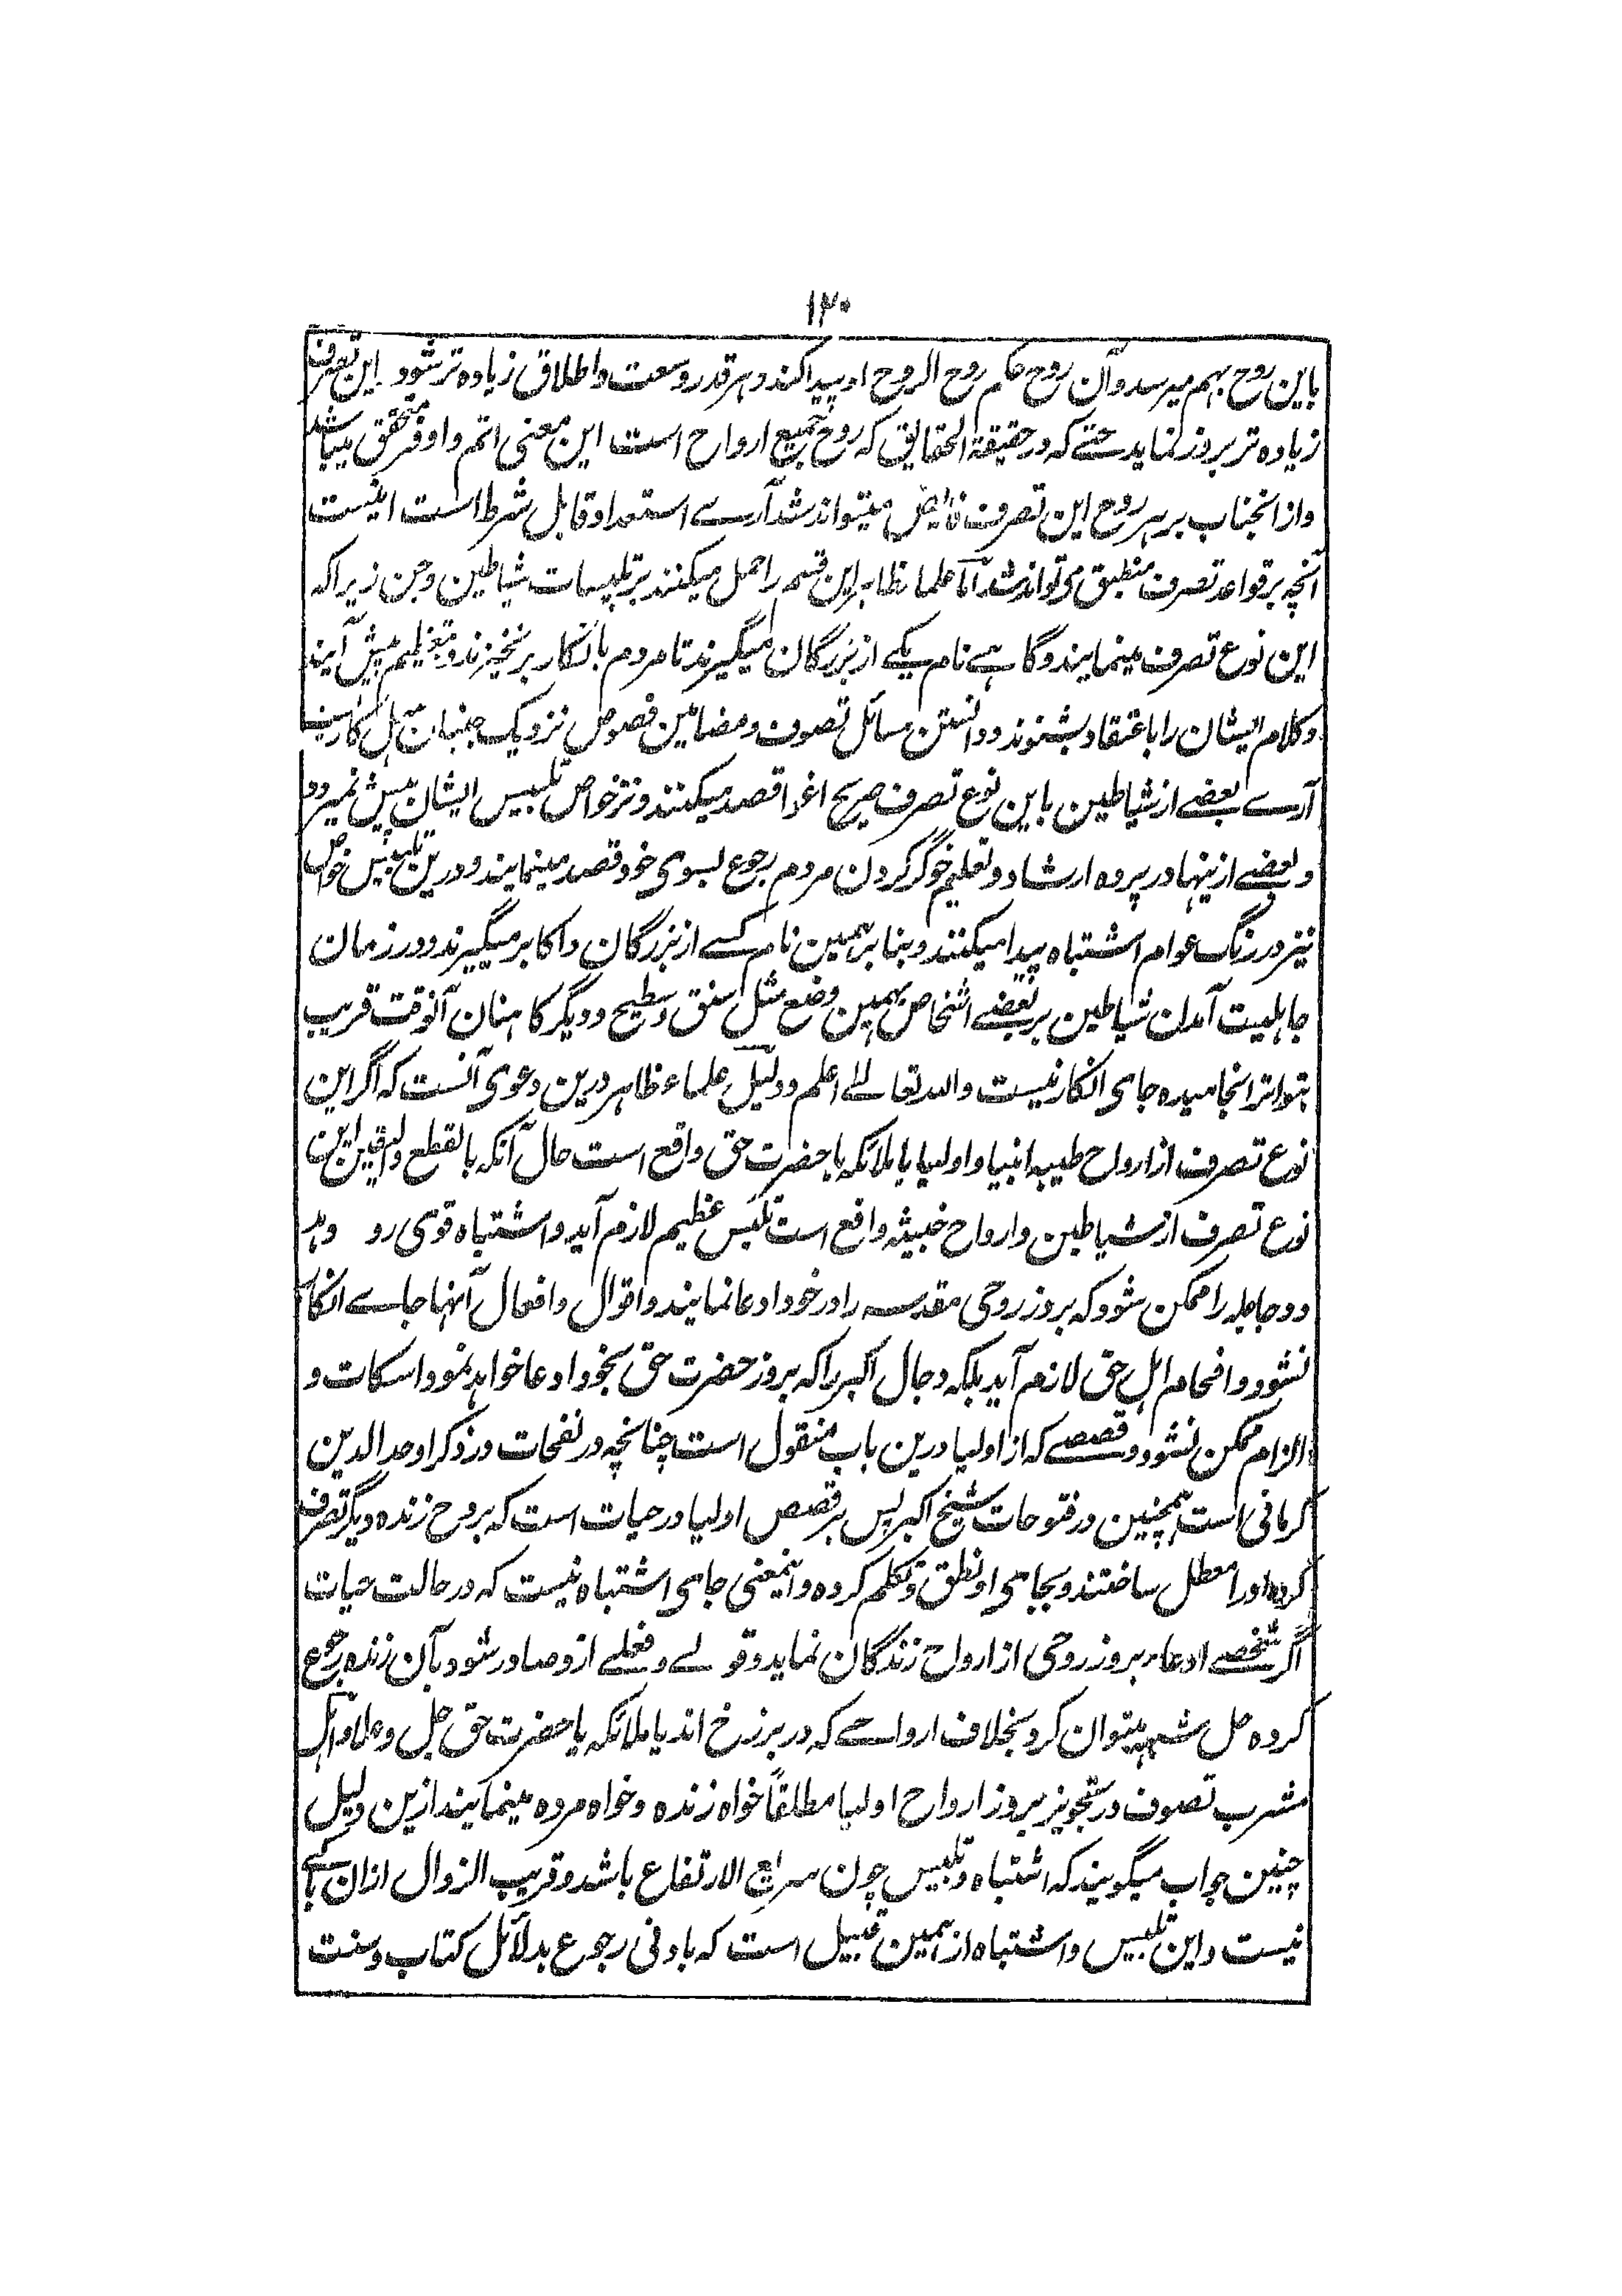 ۱۲۰
باین روح بهم میرسد و آن روح حکم روح الروح او پیدا کند و هر قدر وسعت و اطلاق زیاده تر شود این تصرف
زیاده تر بروز نماید حتے که در حقیقة الحقایق که روح جمیع ارواح است این معنی اتم و اوفر متحقق میباشد
و از انجناب بر هر روح این تصرف فایض میتواند شد آرے استعداد قابل شرط است اینست
آنچه بر قواعد تصوف منطبق میتواند شد اما علما ظاهر این قسم را حمل میکنند بر تلبیسات شیاطین و جن زیرا که
این نوع تصرف مینمایند و گاهے نام یکے از بزرگان میگیرند تا مردم بانکار بر نخیزند و بتعظیم پیش آیند
و کلام ایشان را باعتقاد بشنوند و دانستن مسائل تصوف و مضامین فصوص نزدیک جنیان سهل کاریست
آرے بعضے از شیاطین باین نوع تصرف صریح اغوا قصد میکنند و نزد خواص تلبیس ایشان پیش نمیرود
و بعضے ازینها در پرده ارشاد و تعلیم خوگر کردن مردم برجوع بسوی خود قصد مینمایند و درین تلبیس خواص
نیز در رنگ عوام اشتباه پیدا میکنند و بنا بر همین نام کسے از بزرگان و اکابر میگیرند و در زمان
جاهلیت آمدن شیاطین بر بعضے اشخاص بهمین وضع مثل شق و سطیح و دیگر کاهنان آنوقت قریب
بتواتر انجامیده جای انکار نیست والله تعالے اعلم و دلیل علماء ظاهر درین دعوی آنست که اگر این
نوع تصرف از ارواح طیبه انبیا و اولیا یا ملائکه یا حضرت حق واقع است حال آنکه بالقطع والیقین این
نوع تصرف از شیاطین و ارواح خبیثه واقع است تلبیس عظیم لازم آید و اشتباه قوی رو دهد
و دجاجله را ممکن شود که بروز روحی مقدسه را در خود ادعا نمایند و اقوال و افعال آنها جاے انکار
نشود و افحام اهل حق لازم آید بلکه دجال اکبر را که بروز حضرت حق بخود ادعا خواهد نمود اسکات و
الزام ممکن نشود و قصصے که از اولیا درین باب منقول است چنانچه در نفحات در ذکر اوحد الدین
کرمانی است همچنین در فتوحات شیخ اکبر پس بر قصص اولیا در حیات است که بروح زنده دیگر تصرف
کرده اورا معطل ساختند و بجای او نطق و تکلم کرده و اینمعنی جای اشتباه نیست که در حالت حیات
اگر شخصے ادعاء بروز روحی از ارواح زندگان نماید و قولے و فعلے ازو صادر شود بآن زنده رجوع
کرده حل شبهه میتوان کرد بخلاف ارواحے که در برزخ اند یا ملائکه یا حضرت حق جل و علا و اهل
مشرب تصوف در تجویز بروز ارواح اولیا مطلقاً خواه زنده و خواه مرده مینمایند ازین دلیل
چنین جواب میگویند که اشتباه و تلبیس چون سریع الارتفاع باشد و قریب الزوال ازان باکے
نیست و این تلبیس و اشتباه از همین قبیل است که بادنی رجوع بدلائل کتاب و سنت